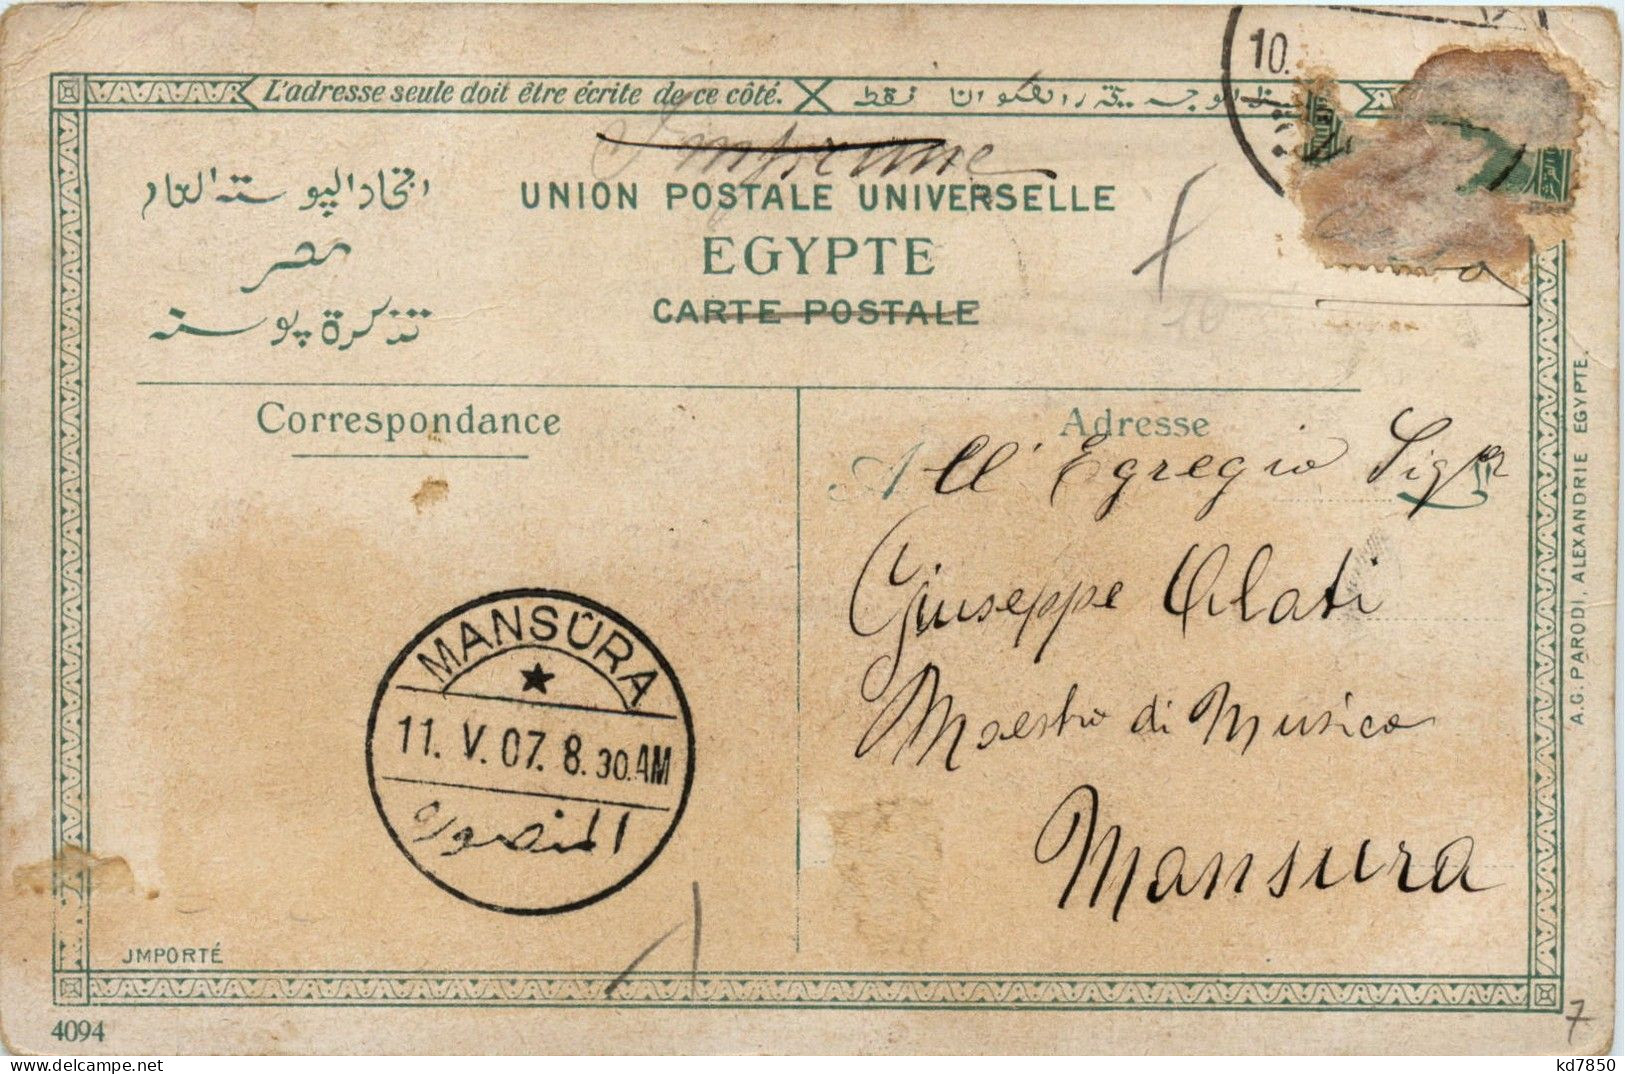 10.
L'adresse seule doit être écrite de ce côté.
Imprimé
اتحاد البوسته العام
UNION POSTALE UNIVERSELLE
مصر
EGYPTE
تذكرة بوسته
CARTE POSTALE
10
Correspondance
Adresse
All' Egregio Sigr
Giuseppe
Maestro di Musica
Mansura
MANSÛRA
11. V. 07. 8.30.AM
المنصوره
A.G. PARODI, ALEXANDRIE EGYPTE.
JMPORTÉ
4094
7
delcampe.net
kd7850